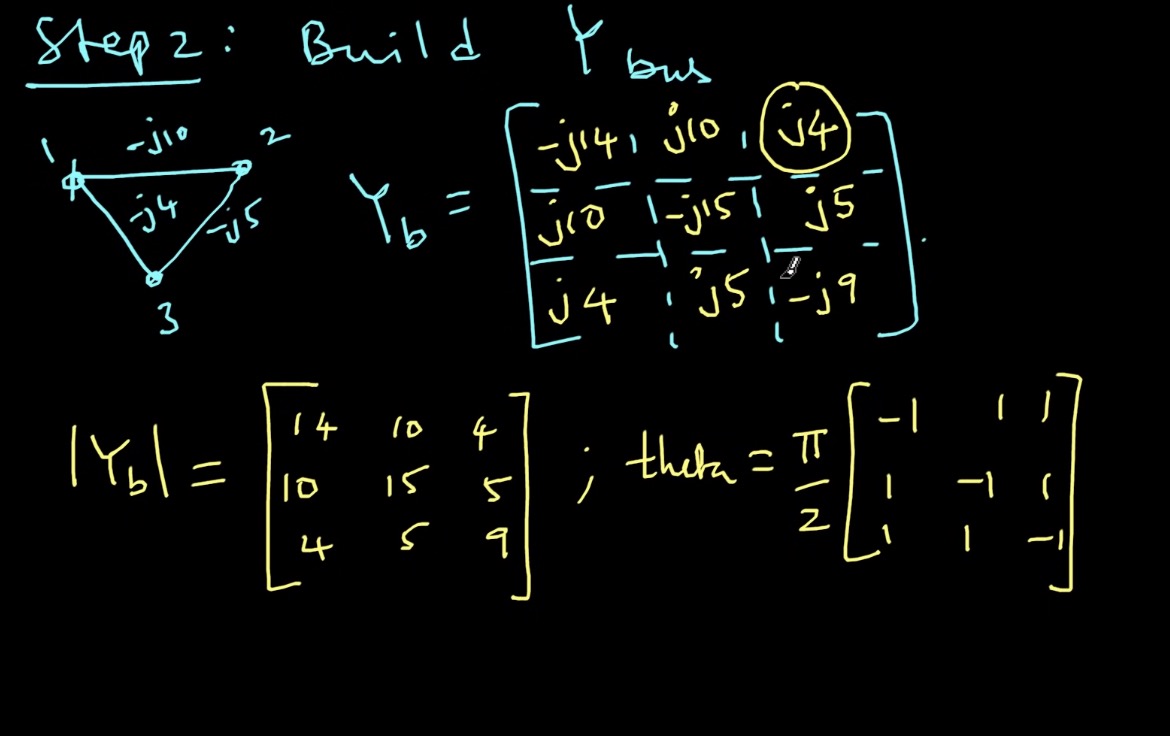 Step 2: Build Y bus
1 -j10 2
-j4 -j5
3
Yb = [ -j14 j10 j4
j10 -j15 j5
j4 j5 -j9 ].
|Yb| = [ 14 10 4
10 15 5
4 5 9 ] ; theta = π/2 [ -1 1 1
1 -1 1
1 1 -1 ]